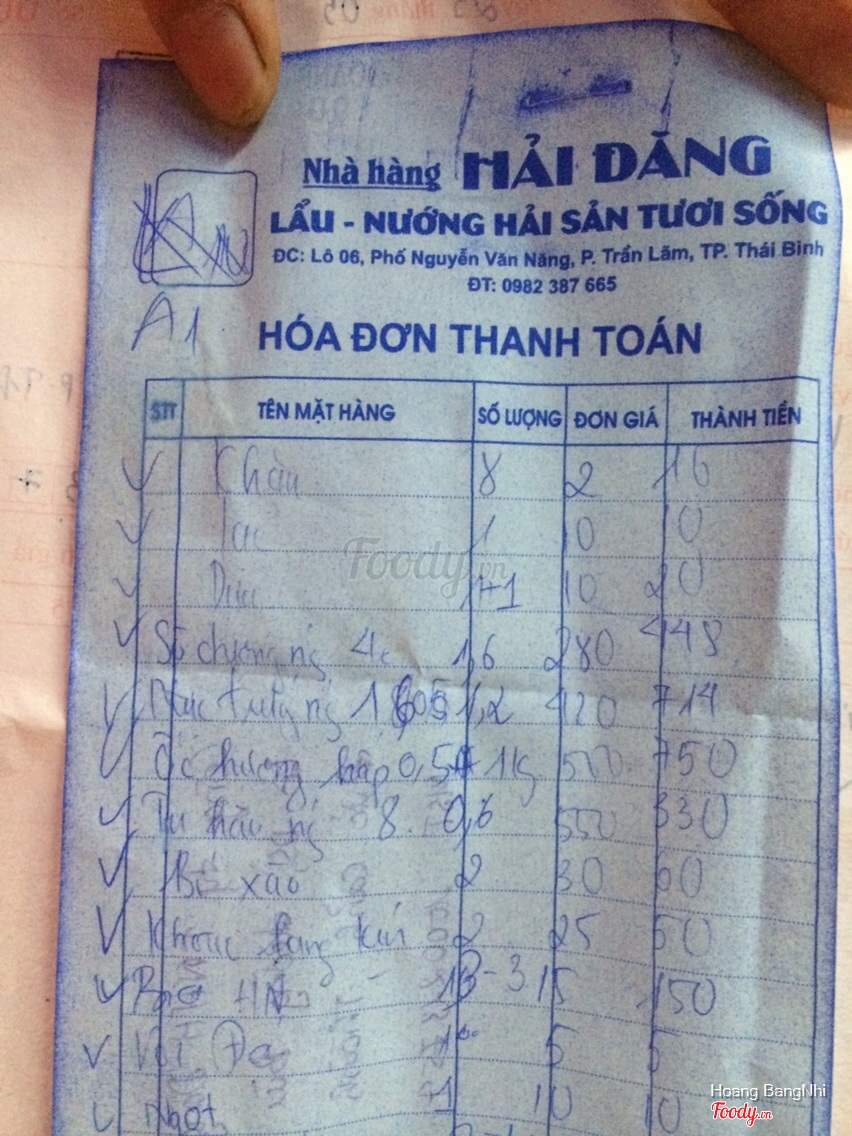 Nhà hàng HẢI ĐĂNG
LẨU - NƯỚNG HẢI SẢN TƯƠI SỐNG
ĐC: Lô 06, Phố Nguyễn Văn Năng, P. Trần Lãm, TP. Thái Bình
ĐT: 0982 387 665
A1
HÓA ĐƠN THANH TOÁN
STT TÊN MẶT HÀNG SỐ LƯỢNG ĐƠN GIÁ THÀNH TIỀN
8 2 16
1 10 10
1+1 10 20
Sò dương ng 4c 1,6 280 448
ng 1,2 420 714
Ốc hương hấp 0,5 + 1kg 500 750
Tu hài ng 8. 0,6 550 330
Bí xào 2 30 60
Khoai lang kén 2 25 50
Bia HN 13-3 15 150
5 5
1 10 10
Foody.vn
Hoang BangNhi
Foody.vn